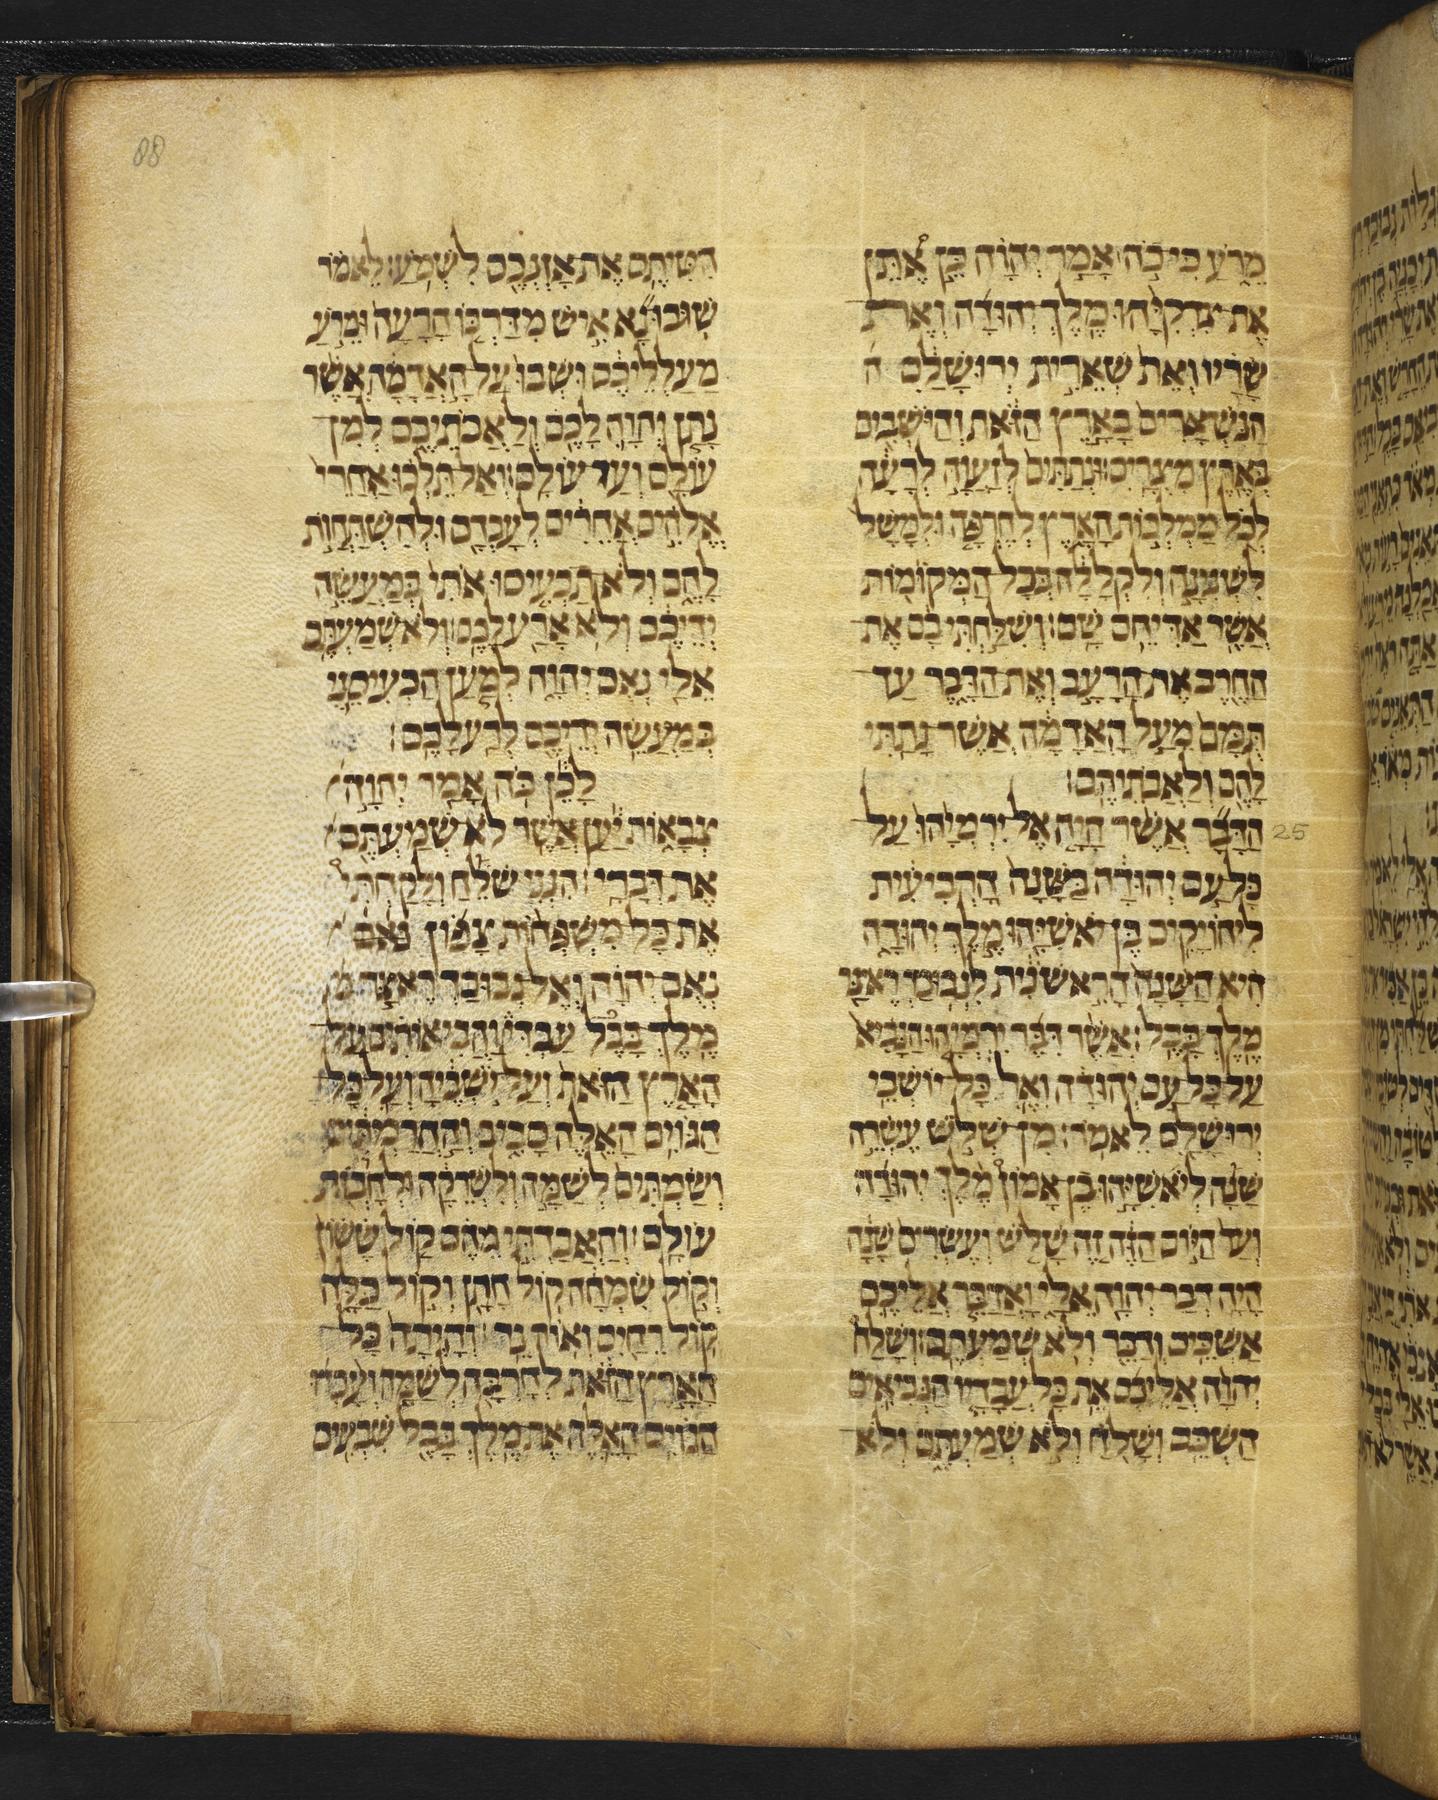 88
מֵרֹעַ כִּי כֹה׀ אָמַר יְהוָה כֵּן אֶתֵּן
אֶת צִדְקִיָּהוּ מֶלֶךְ יְהוּדָה וְאֶת
שָׂרָיו וְאֵת שְׁאֵרִית יְרוּשָׁלִַם ה
הַנִּשְׁאָרִים בָּאָרֶץ הַזֹּאת וְהַיֹּשְׁבִים
בְּאֶרֶץ מִצְרָיִם׃ וּנְתַתִּים לְזַעֲוָה לְרָעָה
לְכֹל מַמְלְכוֹת הָאָרֶץ לְחֶרְפָּה וּלְמָשָׁל
לִשְׁנִינָה וְלִקְלָלָה בְּכָל הַמְּקוֹמוֹת
אֲשֶׁר אַדִּיחֵם שָׁם׃ וְשִׁלַּחְתִּי בָם אֶת
הַחֶרֶב אֶת הָרָעָב וְאֶת הַדָּבֶר עַד
תֻּמָּם מֵעַל הָאֲדָמָה אֲשֶׁר נָתַתִּי
לָהֶם וְלַאֲבֹתֵיהֶם׃
הַדָּבָר אֲשֶׁר הָיָה אֶל יִרְמְיָהוּ עַל 25
כָּל עַם יְהוּדָה בַּשָּׁנָה הָרְבִיעִית
לִיהוֹיָקִים בֶּן יֹאשִׁיָּהוּ מֶלֶךְ יְהוּדָה
הִיא הַשָּׁנָה הָרִאשֹׁנִית לִנְבוּכַדְרֶאצַּר
מֶלֶךְ בָּבֶל׃ אֲשֶׁר דִּבֶּר יִרְמְיָהוּ הַנָּבִיא
עַל כָּל עַם יְהוּדָה וְאֶל כָּל יוֹשְׁבֵי
יְרוּשָׁלִַם לֵאמֹר׃ מִן שְׁלֹשׁ עֶשְׂרֵה
שָׁנָה לְיֹאשִׁיָּהוּ בֶן אָמוֹן מֶלֶךְ יְהוּדָה
וְעַד הַיּוֹם הַזֶּה זֶה שָׁלֹשׁ וְעֶשְׂרִים שָׁנָה
הָיָה דְבַר יְהוָה אֵלָי וָאֲדַבֵּר אֲלֵיכֶם
אַשְׁכֵּים וְדַבֵּר וְלֹא שְׁמַעְתֶּם׃ וְשָׁלַח
יְהוָה אֲלֵיכֶם אֶת כָּל עֲבָדָיו הַנְּבִיאִים
הַשְׁכֵּם וְשָׁלֹחַ וְלֹא שְׁמַעְתֶּם וְלֹא
הִטִּיתֶם אֶת אָזְנְכֶם לִשְׁמֹעַ׃ לֵאמֹר
שׁוּבוּ נָא אִישׁ מִדַּרְכּוֹ הָרָעָה וּמֵרֹעַ
מַעַלְלֵיכֶם וּשְׁבוּ עַל הָאֲדָמָה אֲשֶׁר
נָתַן יְהוָה לָכֶם וְלַאֲבֹתֵיכֶם לְמִן
עוֹלָם וְעַד עוֹלָם׃ וְאַל תֵּלְכוּ אַחֲרֵי
אֱלֹהִים אֲחֵרִים לְעָבְדָם וּלְהִשְׁתַּחֲוֺת
לָהֶם וְלֹא תַכְעִיסוּ אוֹתִי בְּמַעֲשֵׂה
יְדֵיכֶם וְלֹא אָרַע לָכֶם׃ וְלֹא שְׁמַעְתֶּם
אֵלַי נְאֻם יְהוָה לְמַעַן הַכְעִיסֵנִי
בְּמַעֲשֵׂה יְדֵיכֶם לְרַע לָכֶם׃
לָכֵן כֹּה אָמַר יְהוָה
צְבָאוֹת יַעַן אֲשֶׁר לֹא שְׁמַעְתֶּם
אֶת דְּבָרָי׃ הִנְנִי שֹׁלֵחַ וְלָקַחְתִּי
אֶת כָּל מִשְׁפְּחוֹת צָפוֹן נְאֻם
נְאֻם יְהוָה וְאֶל נְבוּכַדְרֶאצַּר מ
מֶלֶךְ בָּבֶל עַבְדִּי וַהֲבִאֹתִים עַל
הָאָרֶץ הַזֹּאת וְעַל יֹשְׁבֶיהָ וְעַל כָּל
הַגּוֹיִם הָאֵלֶּה סָבִיב וְהַחֲרַמְתִּים
וְשַׂמְתִּים לְשַׁמָּה וְלִשְׁרֵקָה וּלְחָרְבוֹת
עוֹלָם׃ וְהַאֲבַדְתִּי מֵהֶם קוֹל שָׂשׂוֹן
וְקוֹל שִׂמְחָה קוֹל חָתָן וְקוֹל כַּלָּה
קוֹל רֵחַיִם וְאוֹר נֵר׃ וְהָיְתָה כָּל
הָאָרֶץ הַזֹּאת לְחָרְבָּה לְשַׁמָּה וְעָבְדוּ
הַגּוֹיִם הָאֵלֶּה אֶת מֶלֶךְ בָּבֶל שִׁבְעִים